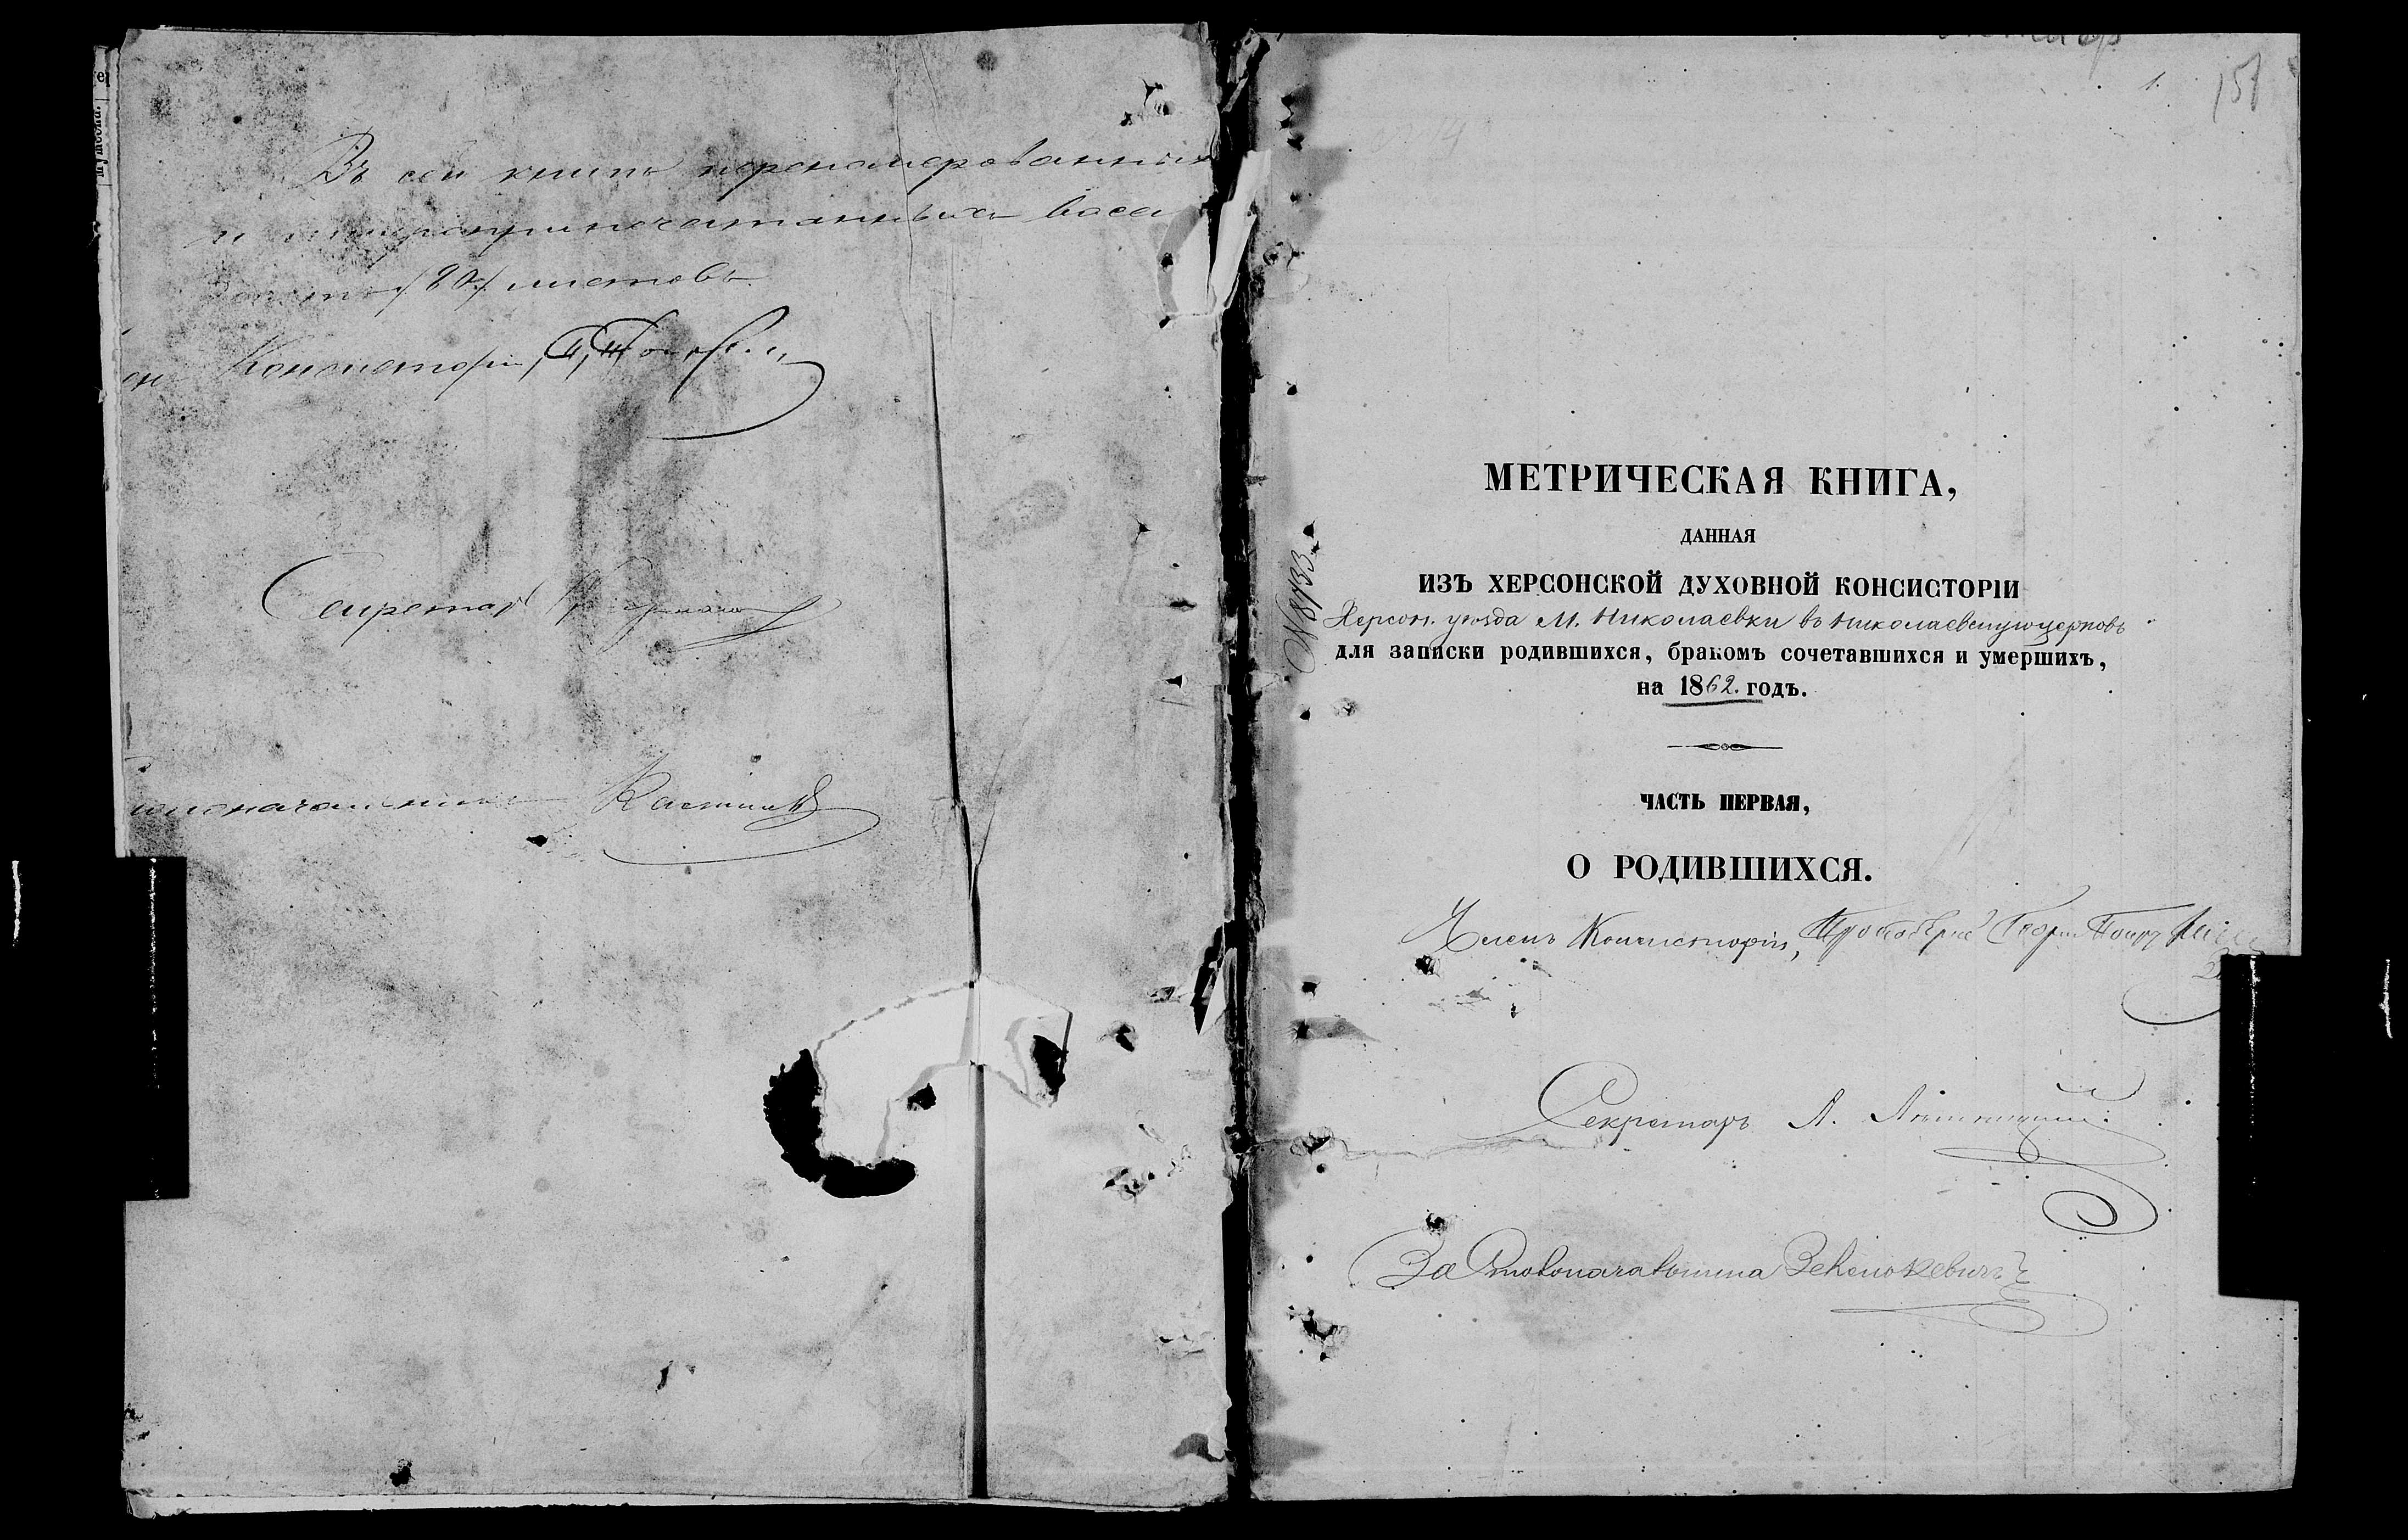 Въ сей книге перенумерованныхъ
и шнуроприпечатанныхъ восем
/80/ листовъ.
Консисторіи,
Секретарь
Столоначальникъ
1.
151
МЕТРИЧЕСКАЯ КНИГА,
ДАННАЯ
ИЗЪ ХЕРСОНСКОЙ ДУХОВНОЙ КОНСИСТОРІИ
Херсон. уѣзда М. Николаевки въ Николаевскую церковь
для записки родившихся, бракомъ сочетавшихся и умершихъ,
на 1862. годъ.
№ 8133.
ЧАСТЬ ПЕРВАЯ,
О РОДИВШИХСЯ.
Членъ Консисторіи, Протоіерей
Секретарь Л.
За Столоначальника